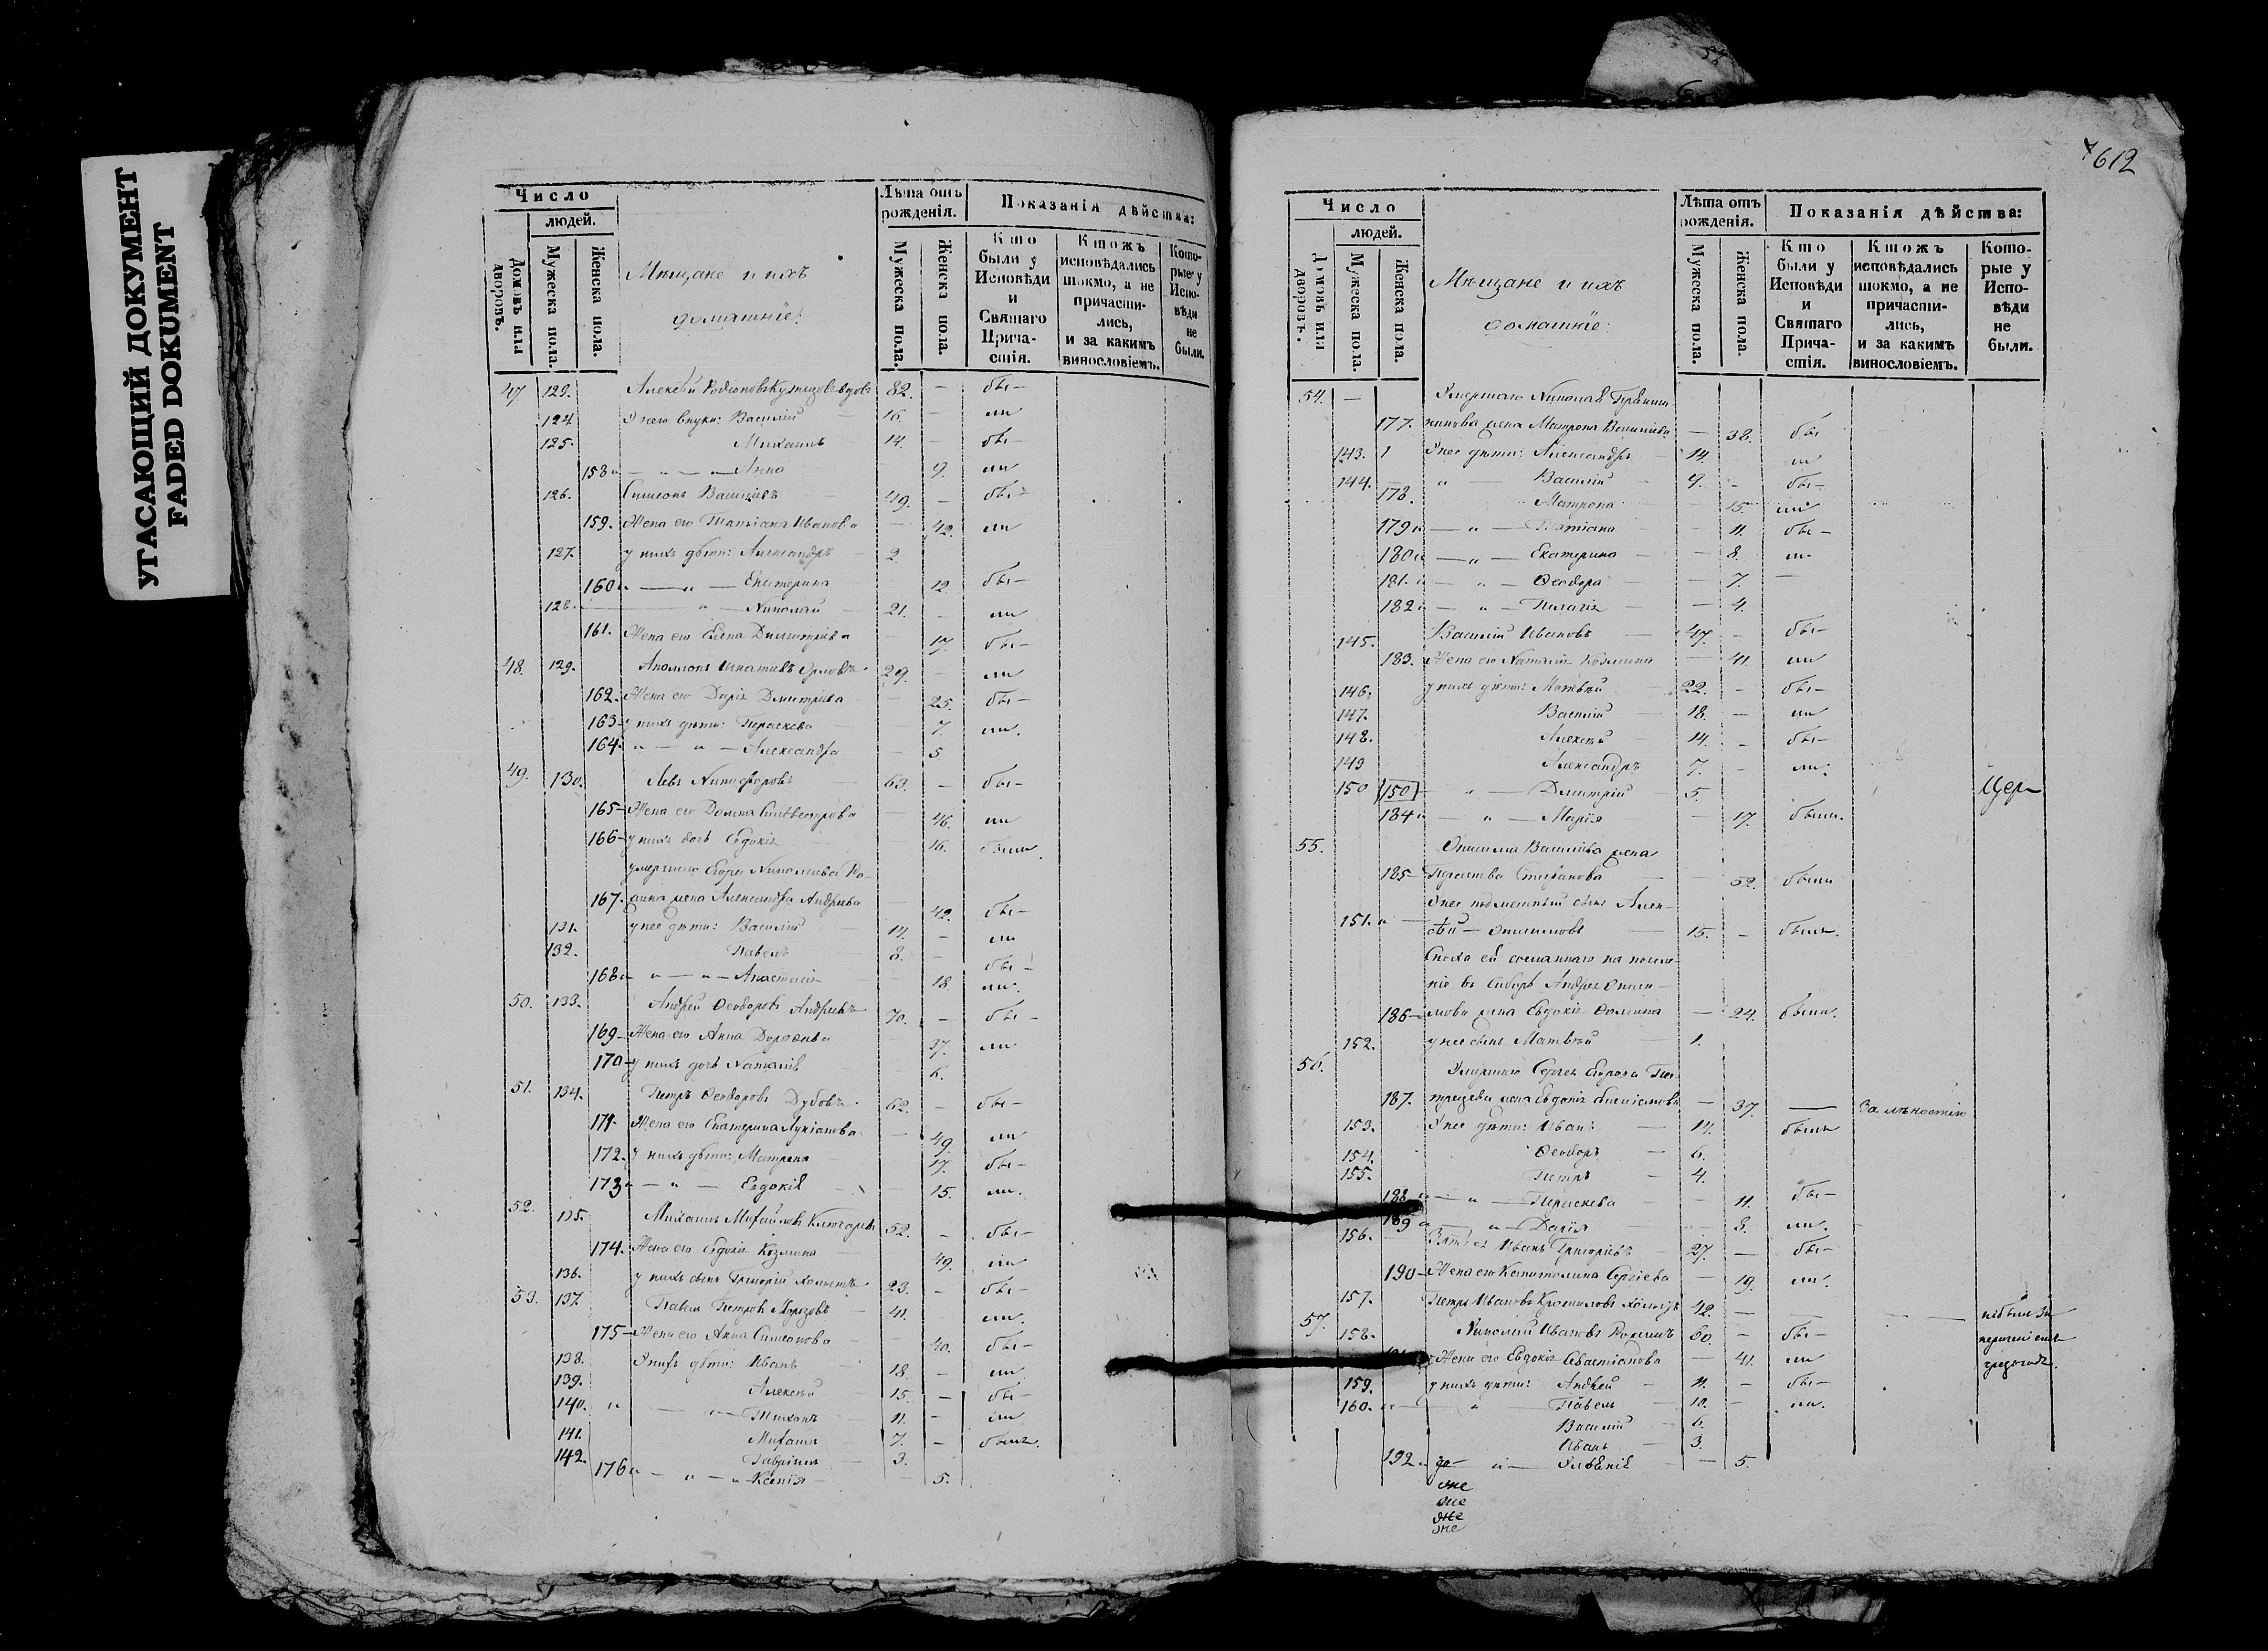 УГАСАЮЩИЙ ДОКУМЕНТ
FADED DOKUMENT
Число
людей.
Домовъ или дворовъ.
Мужеска пола.
Женска пола.
Мещане и ихъ
домашніе:
Лѣта отъ рожденія.
Мужеска пола.
Женска пола.
Показанія дѣйства:
Кто были у Исповѣди и Святаго Причастія.
Ктожъ исповѣдались токмо, а не причастились, и за какимъ винословіемъ.
Которые у Исповѣди не были.
47 123. Алексѣй Родіоновъ Кузнецовъ вдовъ 82. — бы—
124 У него внуки: Василій 16. — ли
125. Михаилъ 14. — бы—
158 " — " — Анна 9. ли
126. Симеонъ Васильевъ 49. — бы—
159. Жена его Татіана Иванова — 42. ли
127. у нихъ дѣти: Александръ 2.
160 " — " — Екатерина 12 бы—
128. " — Николай 21. — ли
161. Жена его Елена Димитріева 17. бы—
48. 129. Аполлонъ Игнатіевъ Орловъ 29. — ли
162. Жена его Дарія Дмитріева — 25. бы—
163 у нихъ дѣти: Параскева 7. ли.
164 " — " — Александра — 5
49. 130. Левъ Никифоровъ 63. — бы—
165 Жена его Домна Сильвестрова — 46. ли
166 у нихъ дочь Евдокія 16. были
умершаго Егора Николаева
167. жена Александра Андреева 42. бы—
131. у нее дѣти: Василій 14. — ли
132. Павелъ 8. — бы—
168 " — " — Анастасія 18. ли.
50. 133. Андрей Ѳеодоровъ Андреевъ 70. — бы—
169 Жена его Анна Дороѳеева 37. ли
170 у нихъ дочь Наталія 6.
51. 134. Петръ Ѳеодоровъ Дубовъ 62. — бы—
171. Жена его Екатерина Лукіанова — 49. ли
172. у нихъ дѣти: Матрона 17. бы—
173 " — " — Евдокія 15. ли.
52. 135. Михаилъ Михайловъ 52. — бы—
174. Жена его Евдокія Козмина 49. ли
136. у нихъ сынъ Григорій холостъ 23. — бы—
53. 137. Павелъ Петровъ Морозовъ 41. ли.
175 Жена его Анна Симеонова — 40. бы—
138. У нихъ дѣти: Иванъ 18. — ли
139. Алексѣй 15. — бы—
140. " — " — Тихонъ 11. — ли
141. Михаилъ 7. — былъ.
142. Гавріилъ 3.
176 " — " — " — Ксенія — 5.
612
Число
людей.
Домовъ или дворовъ.
Мужеска пола.
Женска пола.
Мещане и ихъ
домашніе:
Лѣта отъ рожденія.
Мужеска пола.
Женска пола.
Показанія дѣйства:
Кто были у Исповѣди и Святаго Причастія.
Ктожъ исповѣдались токмо, а не причастились, и за какимъ винословіемъ.
Которые у Исповѣди не были.
54. — Умершаго Николая
177. жена Матрона Васильева — 38. бы
143. 1 У нее дѣти: Александръ 14. ли
144. " — Василій 9. - бы—
178. Матрона 15. ли
179 " — " — Татіана — 11. бы—
180 " — " — Екатерина — 8. ли
181. " — " — Ѳеодора — 7. —
182 " — " — Пелагія — 4.
145. Василій Ивановъ 47. - бы—
183. Жена его Наталія Козмина — 41. ли
146. у нихъ дѣти: Матвѣй 22. - бы—
147. Василій 18. — ли
148. Алексѣй 14. - бы—
149 Александръ 7. - ли.
150 150 " — Дмитрій 5.
184 " — " — Марія — 17. были.
55. Онисима Васильева жена
185 Стефанова — 52. были
У нее сынъ Алек-
151. " — сѣй — Онисимовъ — 15. - былъ.
Сноха ей сосланнаго на поселе-
ніе въ Сибирь АндреяОниси-
186 мова жена Евдокія Ѳомина — 24. были.
152. у нее сынъ Матвѣй 1.
56. Умершаго Сергея Егорова
187. жена Евдокія — 37. — За лѣностію
153. У нее дѣти: Иванъ — 14. былъ
154. Ѳеодоръ — 6.
155. Петръ — 4.
188 " — " — Параскева — 11. бы—
189 " — " — Дарія — 8. ли.
156. Зять ея Иванъ Григорьевъ 27. — бы—
190 Жена его Капитолина Сергіева — 19. ли.
157. Петръ Ивановъ 42. — —
57. 158. Николай Ивановъ 60. — бы—
Жена его Евдокія Севастіанова — 41. ли
159. у нихъ дѣти: Андрей — 11. — бы—
160. " — " — Павелъ — 10. — ли.
Василій — 6.
Иванъ — 3.
192 " — " — — 5.
же
же
же
же